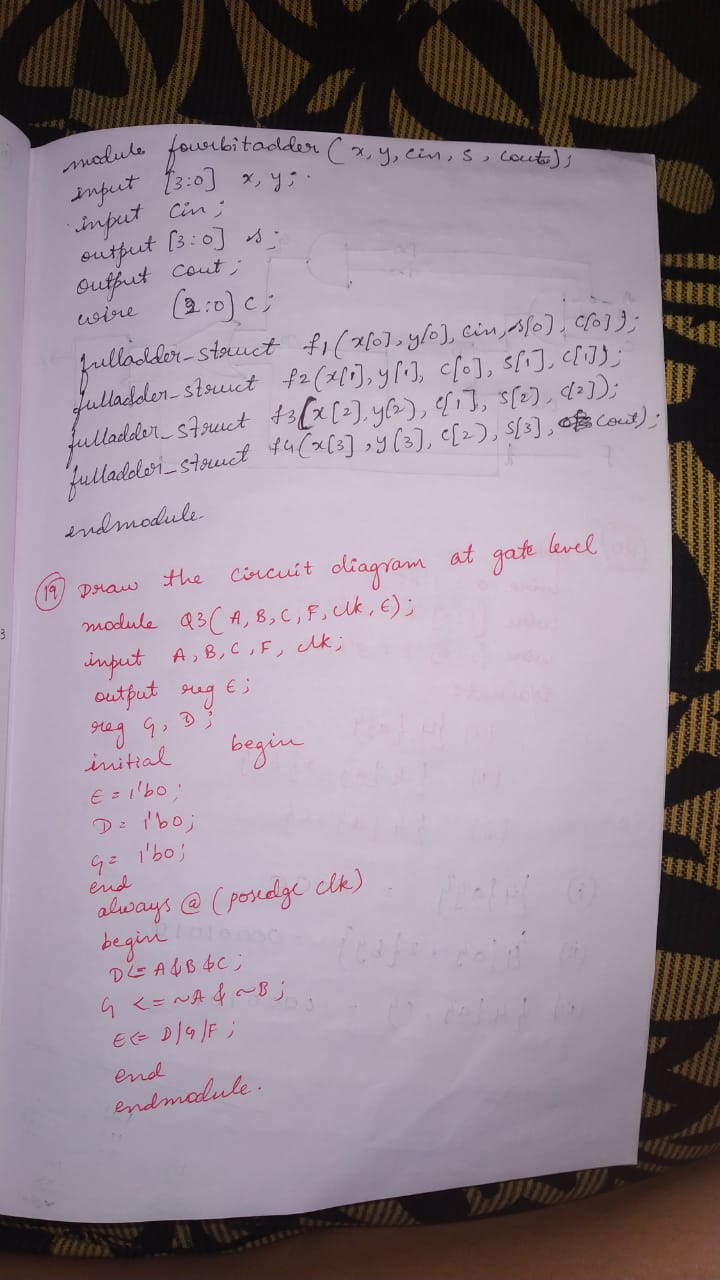 module fourbitadder (x, y, cin, s, cout);
input [3:0] x, y;
input cin;
output [3:0] s;
output cout;
wire [2:0] c;
fulladder-struct f1(x[0], y[0], cin, s[0], c[0]);
fulladder-struct f2(x[1], y[1], c[0], s[1], c[1]);
fulladder_struct f3(x[2], y[2], c[1], s[2], c[2]);
fulladder_struct f4(x[3], y[3], c[2], s[3], cout);
endmodule
19 Draw the circuit diagram at gate level
module Q3(A, B, C, F, clk, E);
input A, B, C, F, clk;
output reg E;
reg G, D;
initial begin
E = 1'b0;
D = 1'b0;
G = 1'b0;
end
always @ (posedge clk)
begin
D <= A & B & C;
G <= ~A & ~B;
E <= D|G|F;
end
endmodule.
3